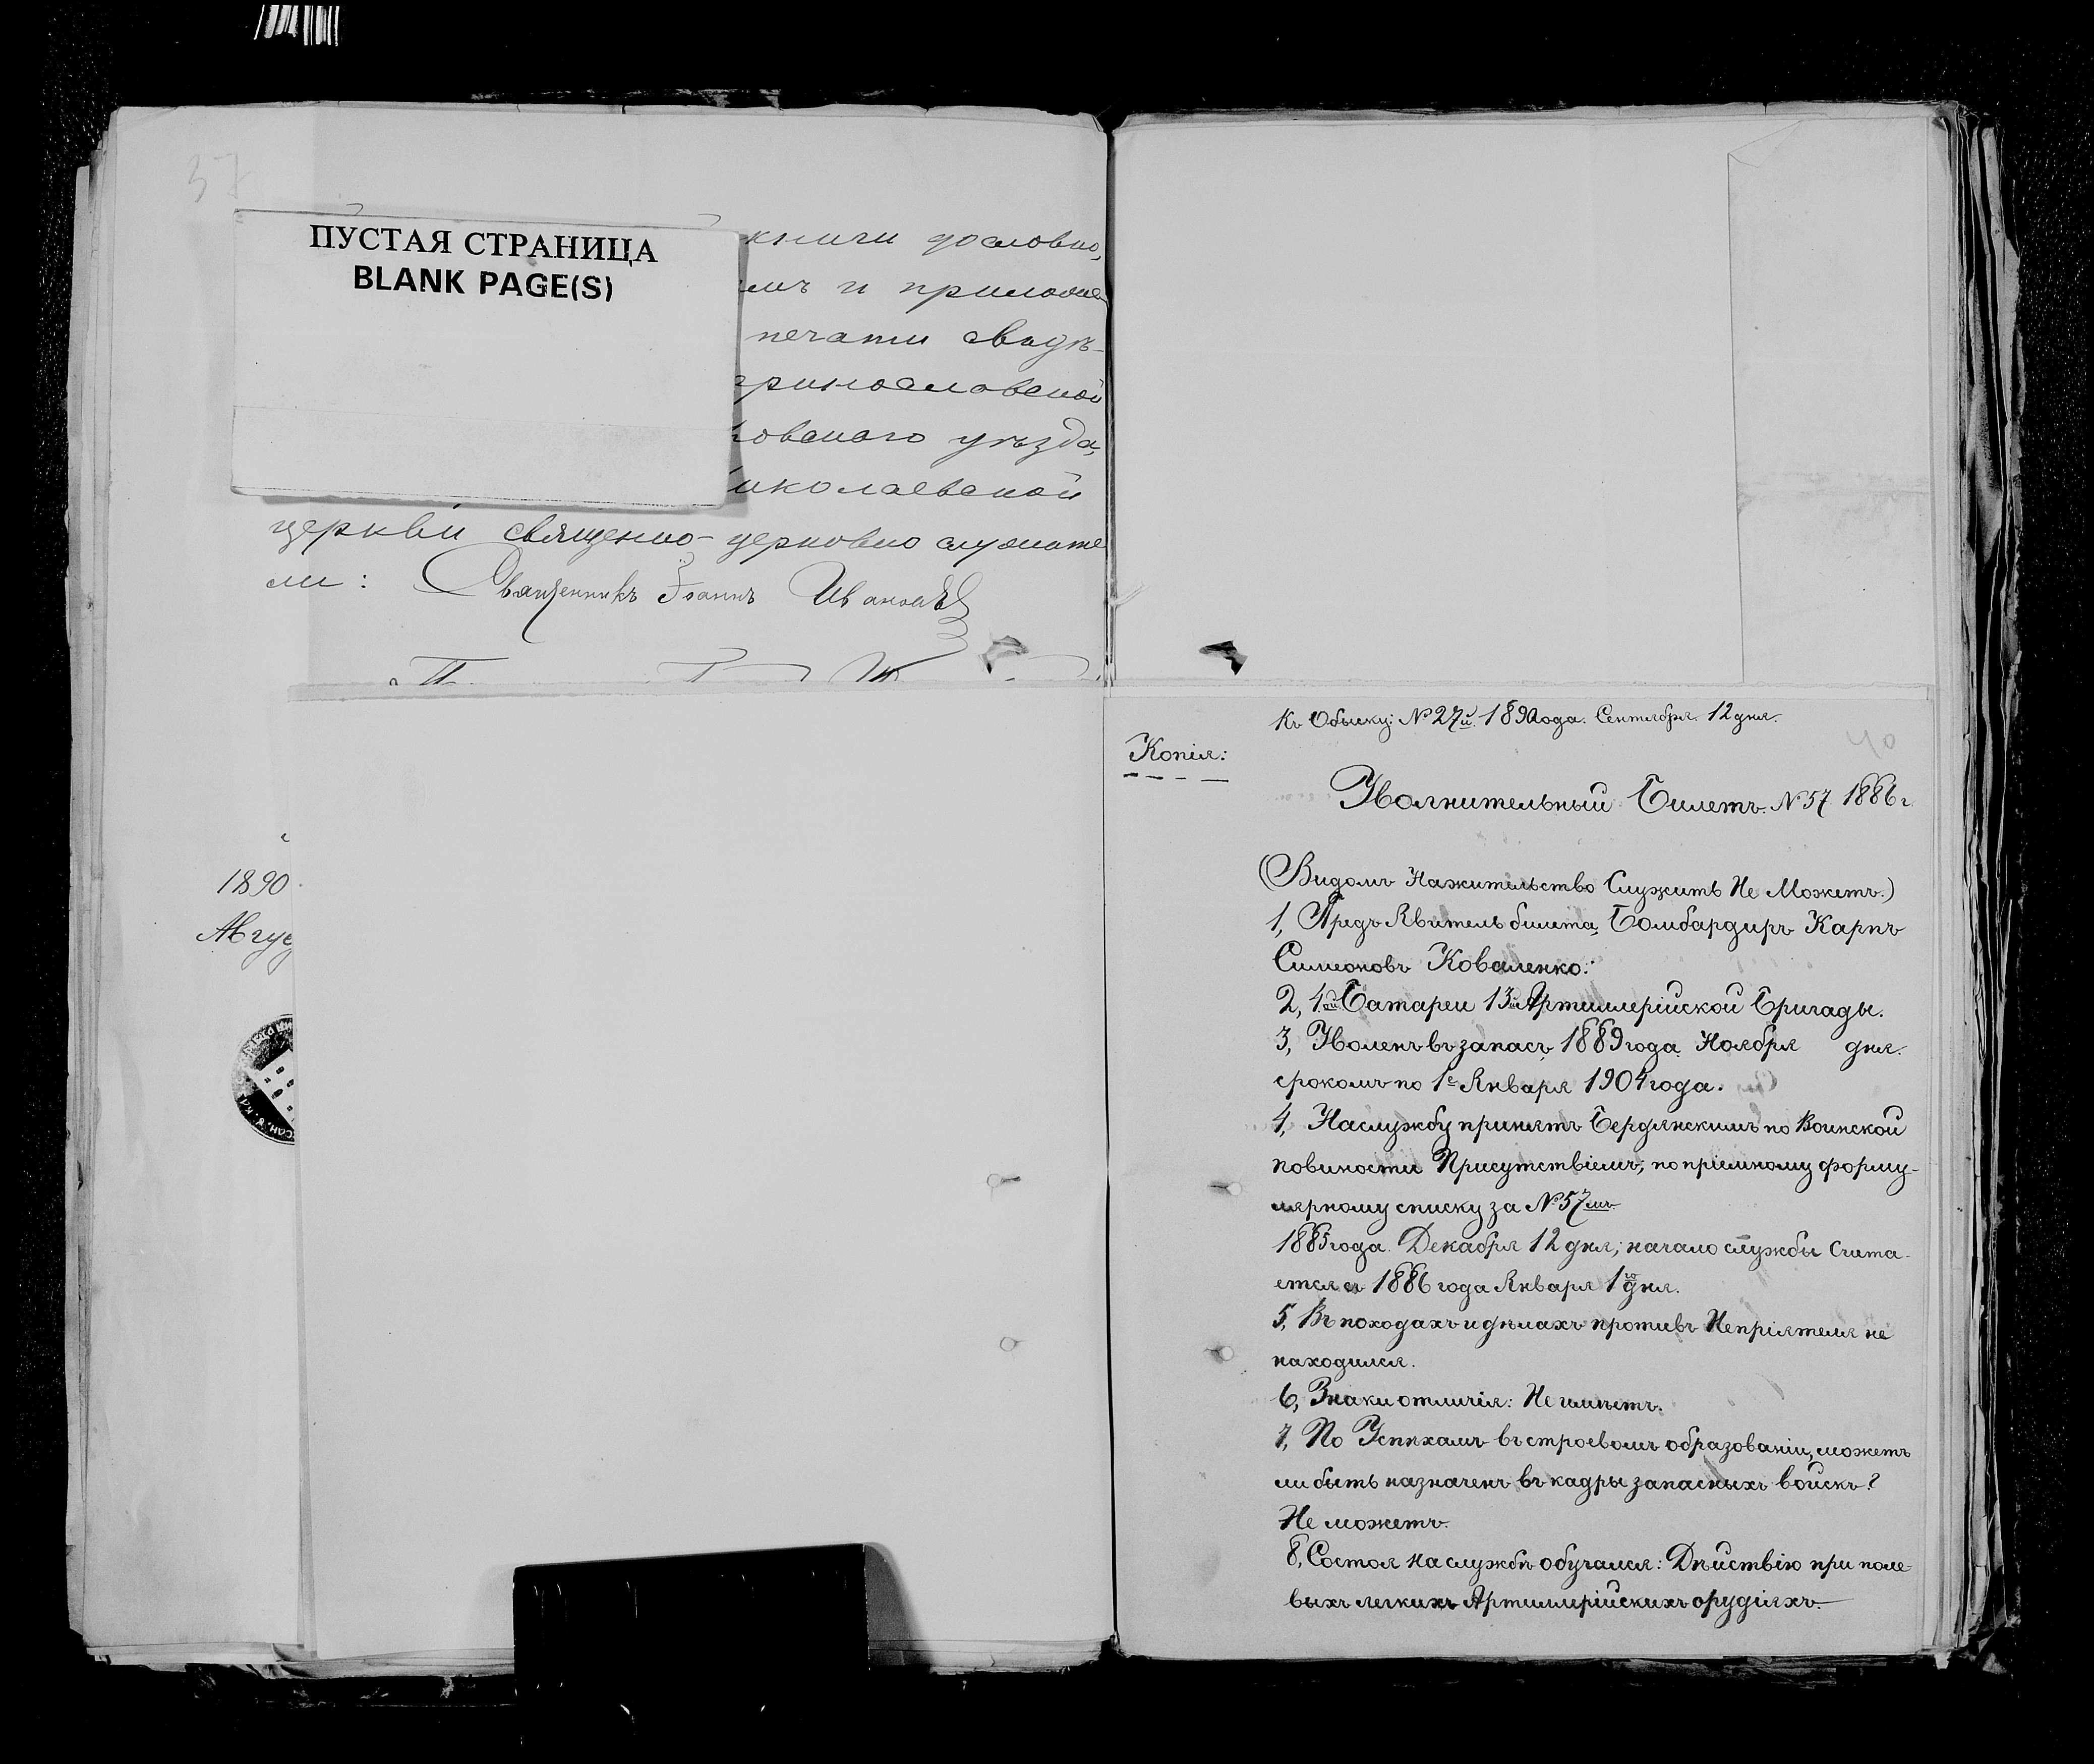 37
ПУСТАЯ СТРАНИЦА
BLANK PAGE(S)
книги дословно,
печати свидѣ-
уѣзда,
церкви священно-церковно служите
ли: Священникъ Іоаннъ
1890
Авгус
Къ Обыску: № 27й 1890 года. Сентября 12 дня.
40
Копія:
Уволнительный Билетъ. № 57 1886 г.
(Видомъ Нажительство Служить Не Можетъ.)
1, Предъ Явитель билета, Бомбардиръ Карпъ
Симеоновъ Коваленко:
2, 4ой Батареи 13ой Артиллерійской Бригады.
3, Уволенъ въ запасъ, 1889 года Ноября дня.
срокомъ по 1е Января 1904 года.
4, Наслужбу принятъ Бердянскимъ по Воинской
повиности Присутствіемъ; по пріемному форму-
лярному списку за № 57мъ
1885 года. Декабря 12 дня; начало службы счита-
ется съ 1886 года Января 1го дня.
5, Въ походахъ и дѣлахъ противъ Непріятеля не
находился.
6, Знаки отличія: Не имѣетъ.
7, По Успѣхамъ въ строевомъ образованіи, можетъ
ли быть назначенъ въ кадры запасныхъ войскъ?
Не можетъ.
8, Состоя на службѣ обучался: Дѣйствію при поле-
выхъ легкихъ Артиллерійскихъ орудіяхъ.